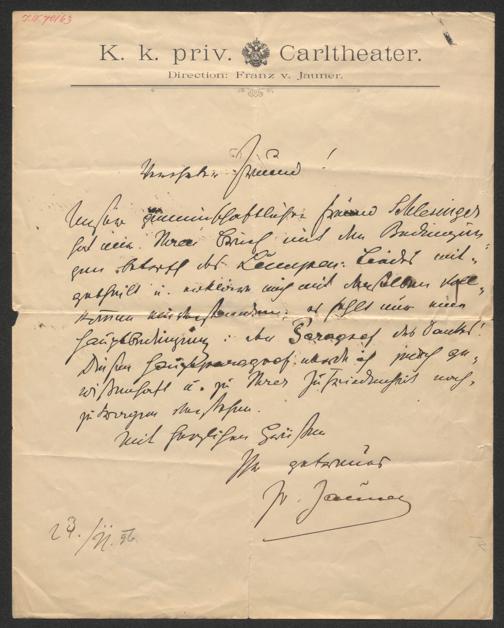 K. k. priv. Carltheater.
Direction: Franz v. Jauner.
Verehrter Freund!
Unser gemeinschaftlicher Freund Schlesinger
hat mir Ihren Brief mit den Bedingun-
gen betreffs des Liedes mit-
getheilt u. erkläre mich mit denselben voll-
kommen einverstanden; es fehlt nur eine
Hauptbedingung: der Paragraf des Dankes!
Diesen Hauptparagraf werde ich jedoch ge-
wissenhaft u. zu Ihrer Zufriedenheit nach-
zutragen
Mit herzlichen Grüßen
Ihr getreuer
Fr. Jauner